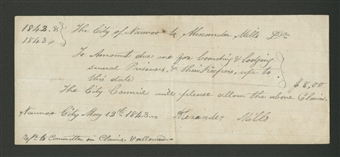 1842 & The City of Nauvoo to Alexander Mills Dr.
1843
To Amount due me for boarding & lodging
several Prisoners, & their Keepers, up to
this date $8,00
The City Council will please allow the above Claim.
Nauvoo City May 12th 1843. Alexander Mills
Refd. to Committee on Claims